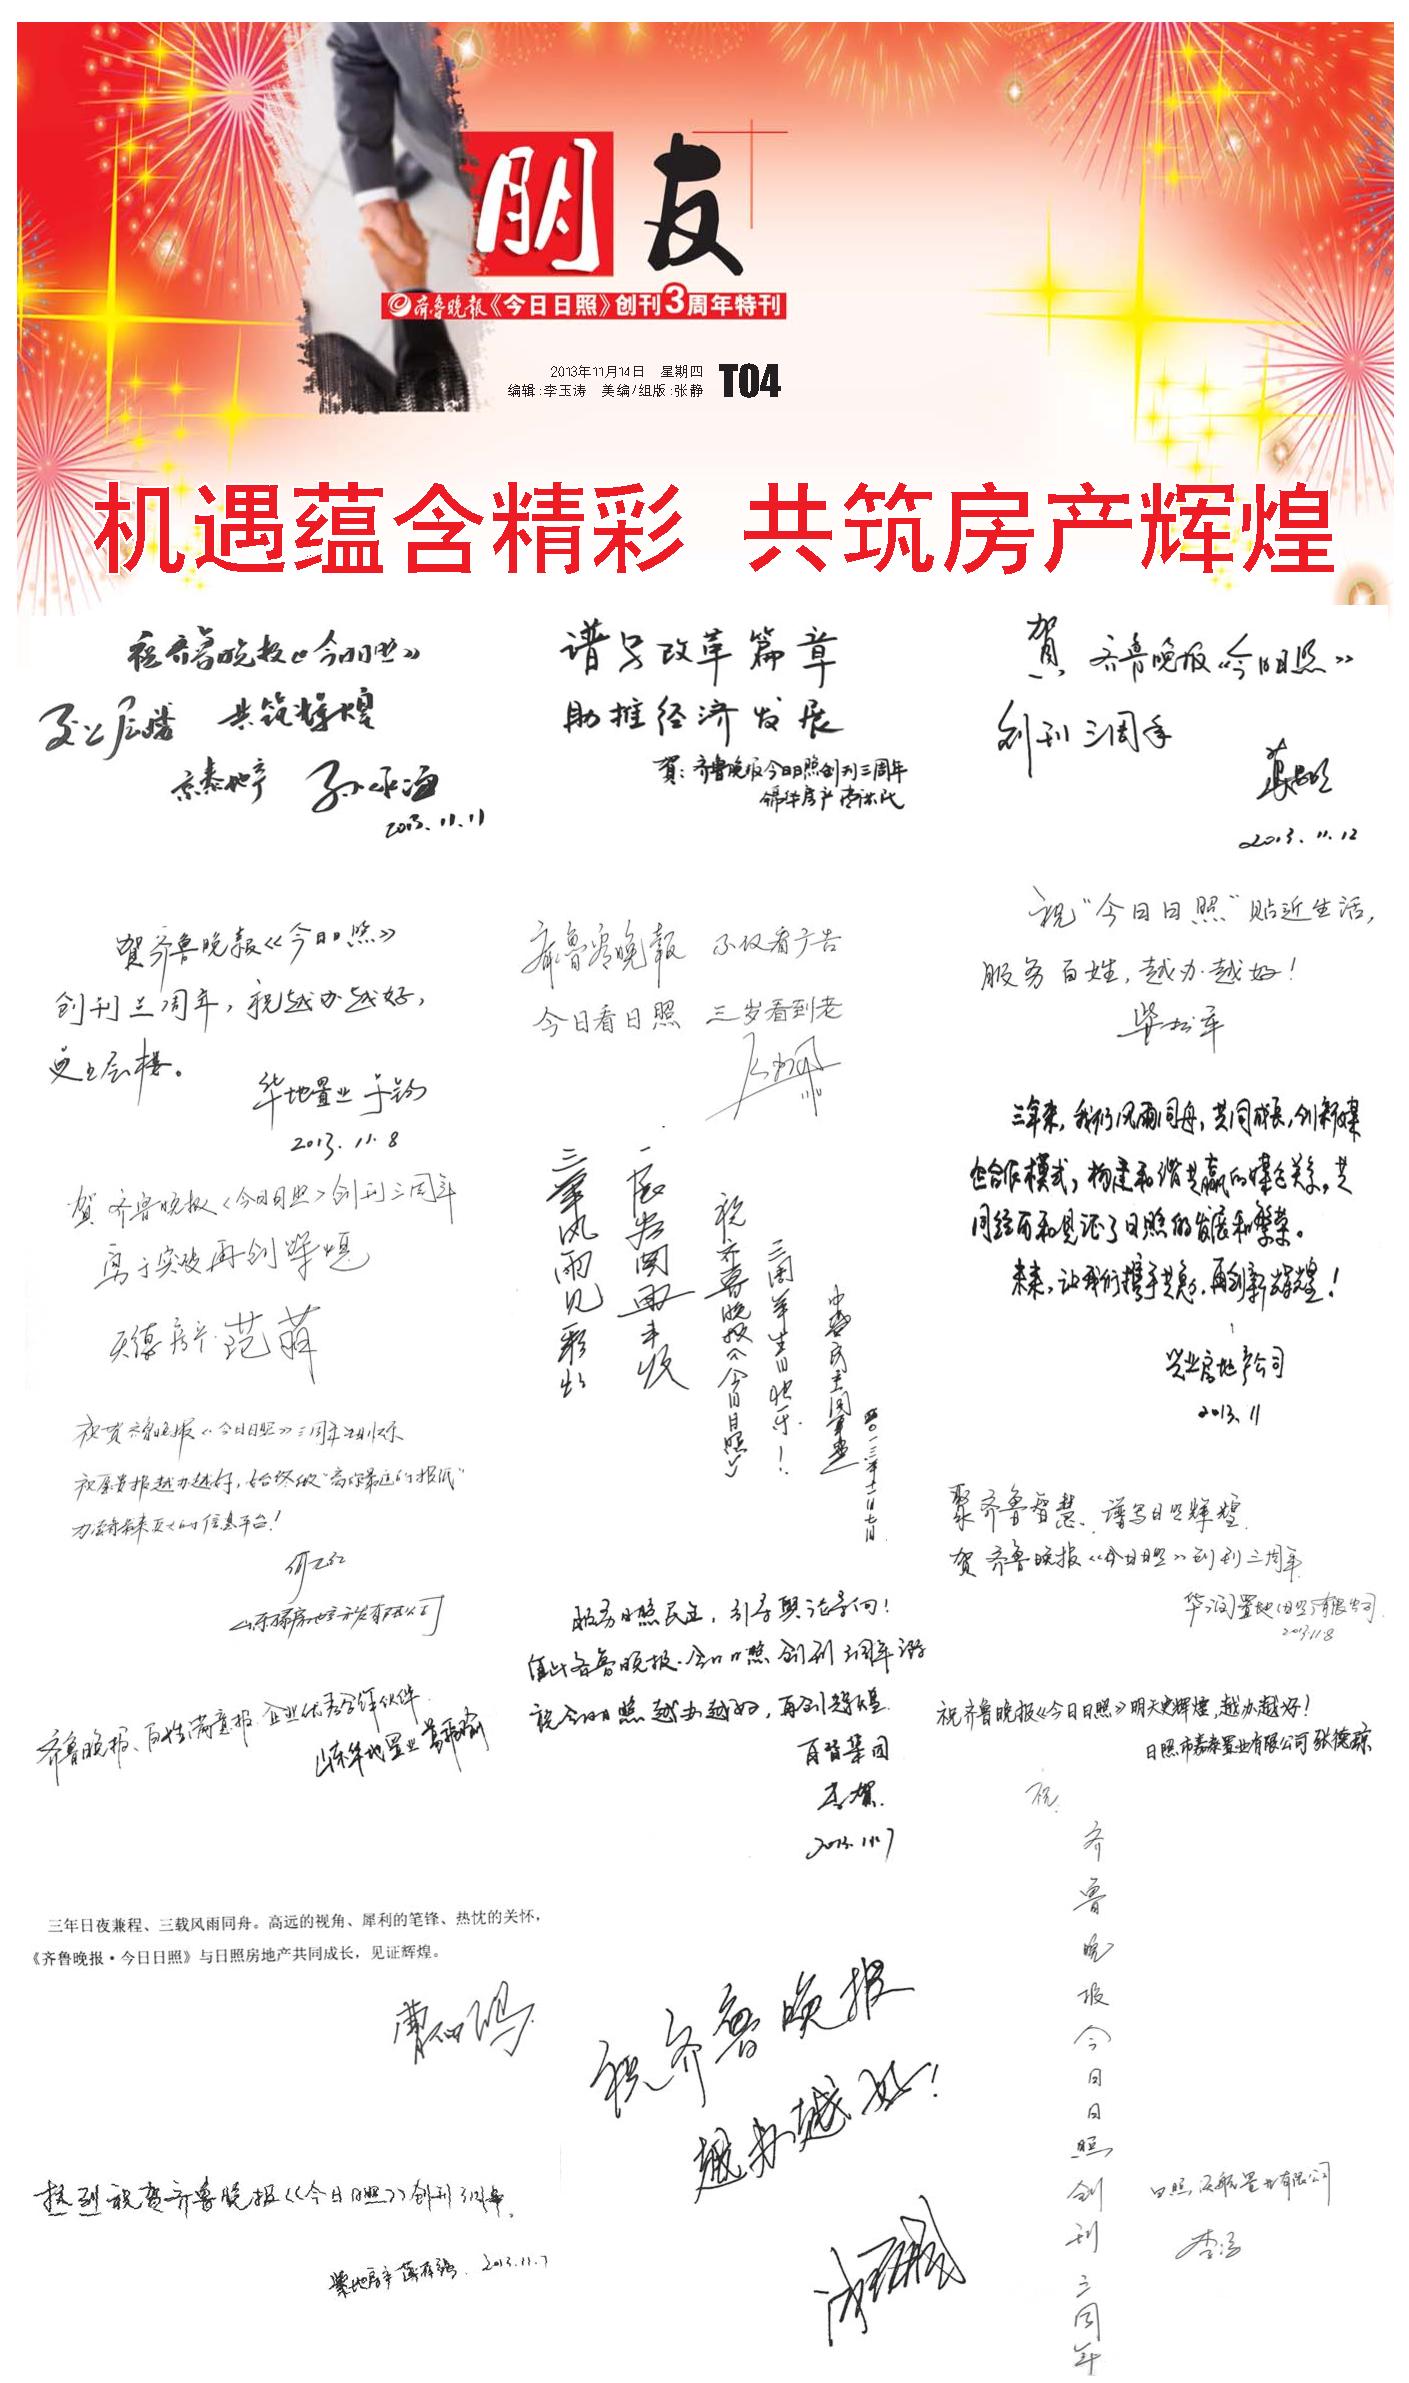 朋友
齐鲁晚报《今日日照》创刊3周年特刊
2013年11月14日 星期四
编辑:李玉涛 美编/组版:张静
T04
机遇蕴含精彩 共筑房产辉煌
祝齐鲁晚报《今日日照》
更上层楼 共筑辉煌
2013.11.11
谱写改革篇章
助推经济发展
贺:齐鲁晚报今日日照创刊三周年
贺 齐鲁晚报《今日日照》
创刊三周年
2013.11.12
贺齐鲁晚报《今日日照》
创刊三周年,祝越办越好,
更上层楼。
华地置业
2013.11.8
齐鲁看晚报 不仅看广告
今日看日照 三岁看到老
祝“今日日照”贴近生活,
服务百姓,越办越好!
柴松军
贺 齐鲁晚报《今日日照》创刊三周年
勇于突破再创辉煌
天德房产 范萌
三年风雨见彩虹
祝齐鲁晚报《今日日照》
三周年生日快乐!
二〇一三年十一月七日
三年来,我们风雨同舟,共同成长,创新媒
企合作模式,构建和谐共赢的媒企关系,共
同经历和见证了日照的发展和繁荣。
未来,让我们携手共赢,再创新辉煌!
兴业房地产公司
2013.11
祝贺齐鲁晚报《今日日照》三周年
祝愿贵报越办越好,始终做“离你最近的报纸”
信息平台!
聚齐鲁智慧、谱写日照辉煌
贺 齐鲁晚报《今日日照》创刊三周年
华润置地(日照)有限公司
2013.11.8
服务日照民生,引导舆论导向!
值此齐鲁晚报·今日日照创刊三周年之际
祝今日日照越办越好,再创辉煌
百智集团
李贺
2013.11.7
齐鲁晚报、百姓满意报 企业优秀合作伙伴
山东华地置业
祝齐鲁晚报《今日日照》明天更辉煌,越办越好!
日照市嘉泰置业有限公司 张德琼
三年日夜兼程、三载风雨同舟。高远的视角、犀利的笔锋、热忱的关怀,
《齐鲁晚报·今日日照》与日照房地产共同成长,见证辉煌。
热烈祝贺齐鲁晚报《今日日照》创刊3周年。
2013.11.7
祝齐鲁晚报
越办越好!
祝
齐鲁晚报今日日照创刊三周年